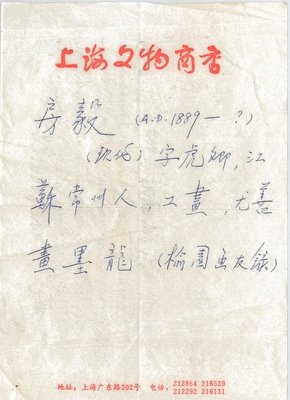 上海文物商店
房毅 (A.D.1889— ?)
(现代) 字虎卿,江
蘇常州人,工畫,尤善
畫墨龍 (榆園画友錄)
地址:上海广东路202号 电话:212864 216529
212292 216131